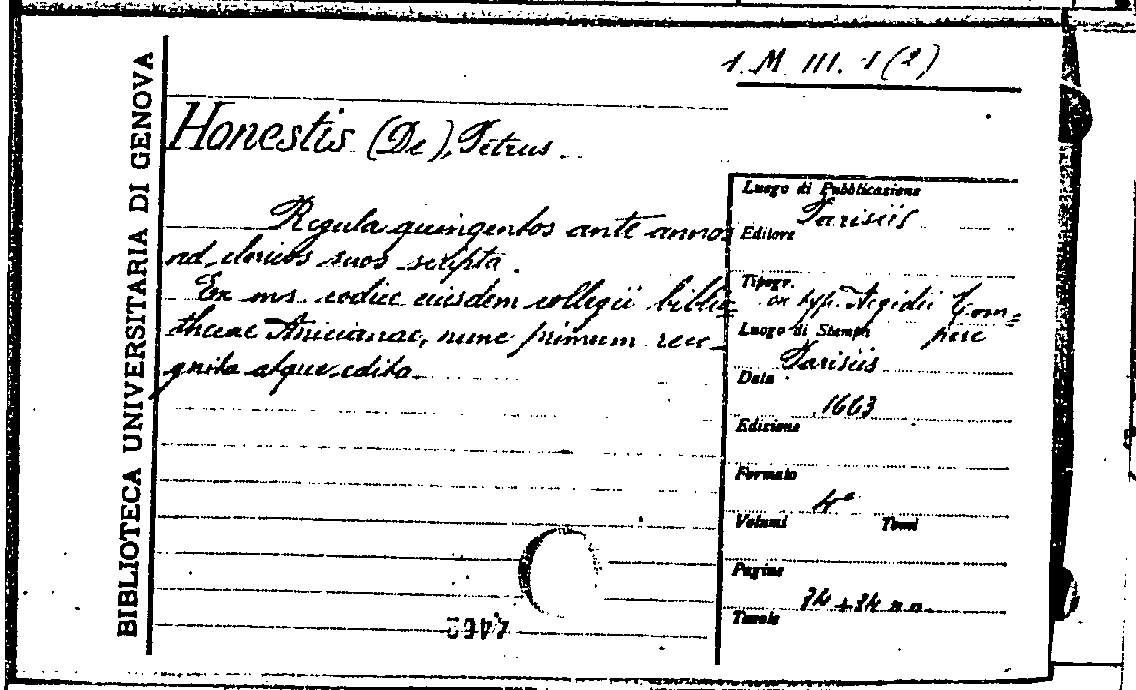 1. M III. 1 (2)
BIBLIOTECA UNIVERSITARIA DI GENOVA
Honestis (De), Petrus.
Regula quingentos ante annos
ad clericos suos scripta.
Ex ms. codice eiusdem collegii biblio
thecae Anicianae, nunc primum reco-
gnita atque edita.
Luogo di Pubblicazione
Parisiis
Editore
Tipogr.
ex typ. Aegidii Tom=
pere
Luogo di Stampa
Parisiis
Data
1663
Edizione
Formato
4°
Volumi Tomi
Pagine
34 + 34 n n.
Tavole